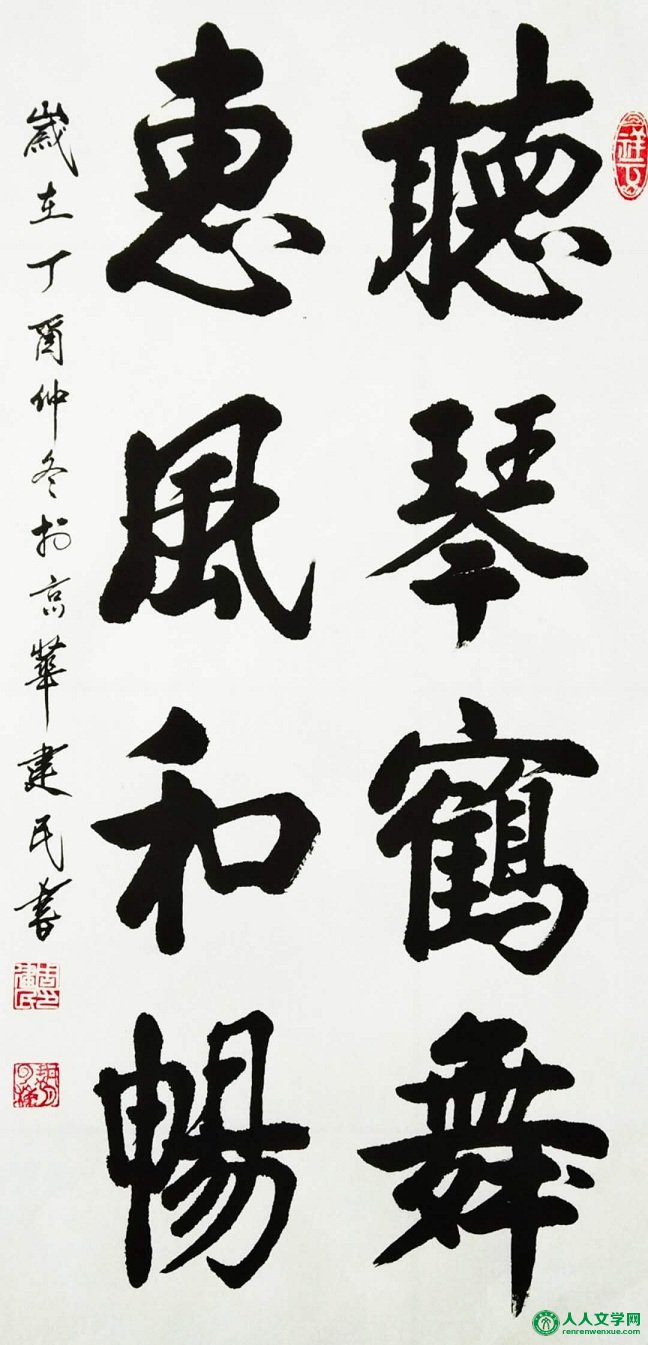 聽琴鶴舞
惠風和暢
歲在丁酉仲冬於京華建民書
人人文学网
renrenwenxue.com